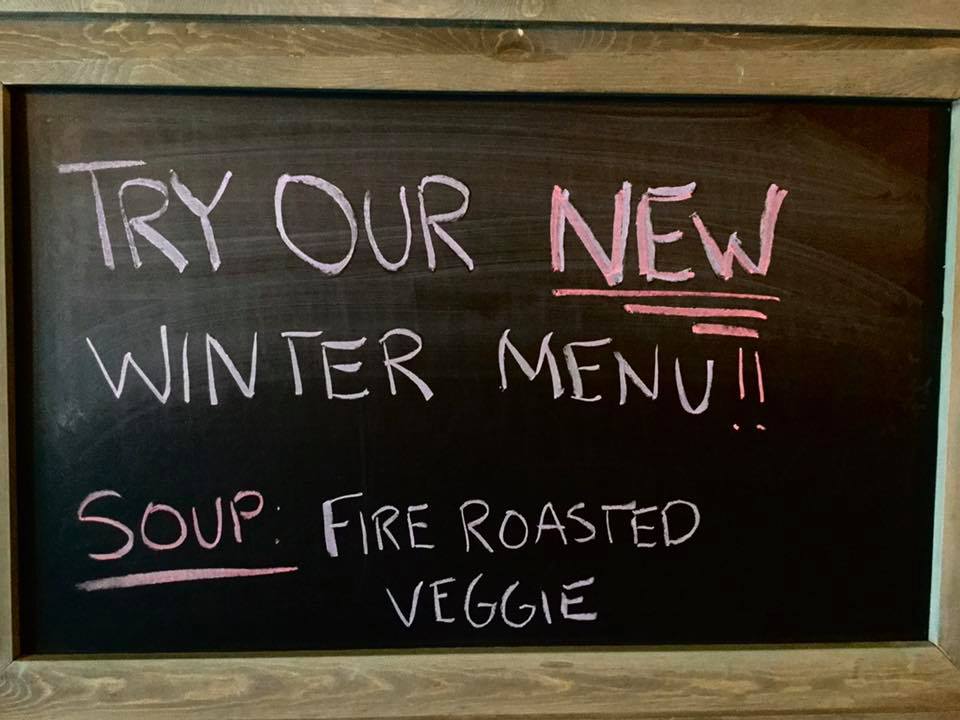 TRY OUR NEW
WINTER MENU!!
SOUP: FIRE ROASTED
VEGGIE